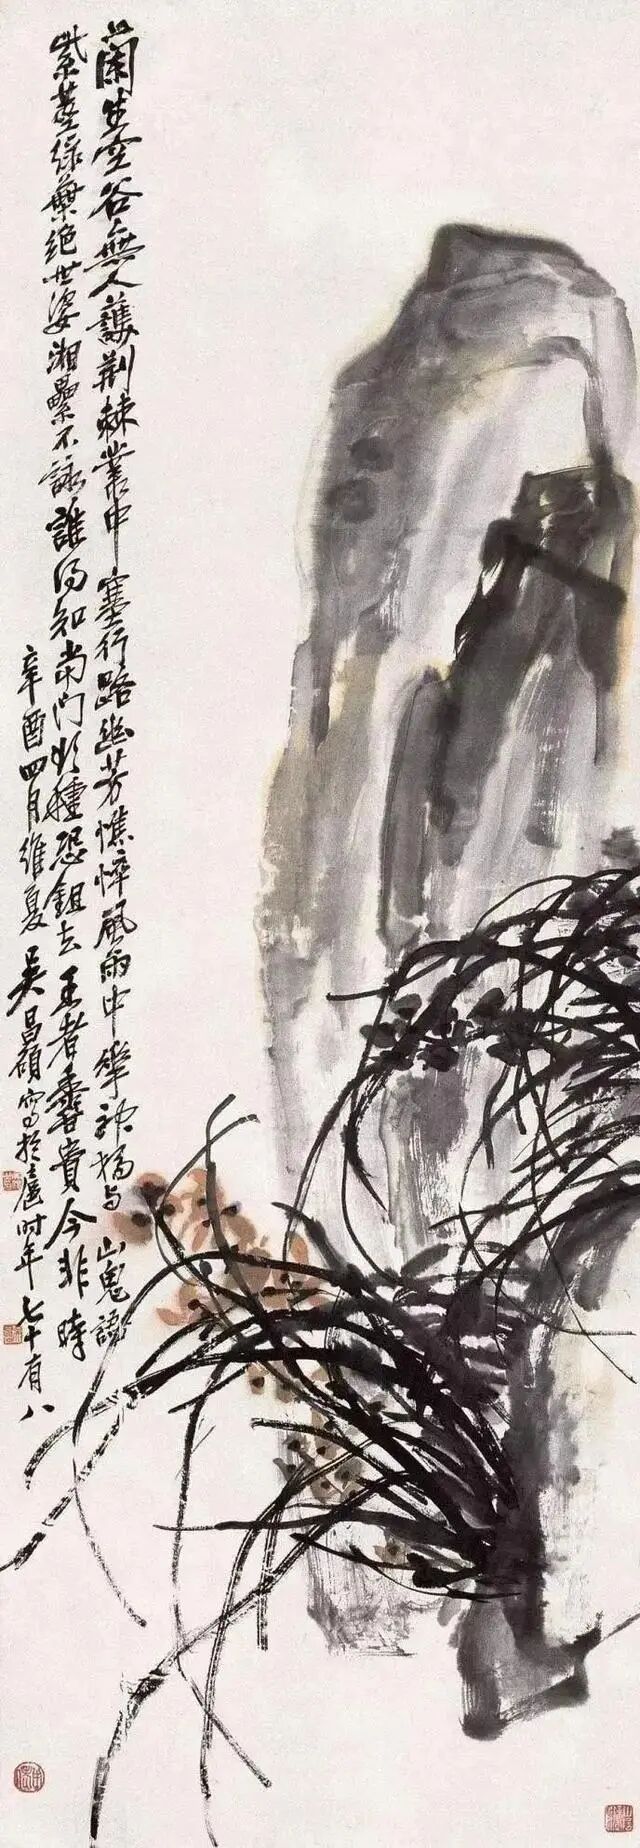 蘭生空谷無人護荊棘叢中塞行路幽芳憔悴風雨中華神獨与山鬼語
紫莖綠葉絕世姿湘纍不詠誰得知當門欲種恐鉏去王者香貴今非時
辛酉四月維夏吳昌碩寫於滬時年七十有八